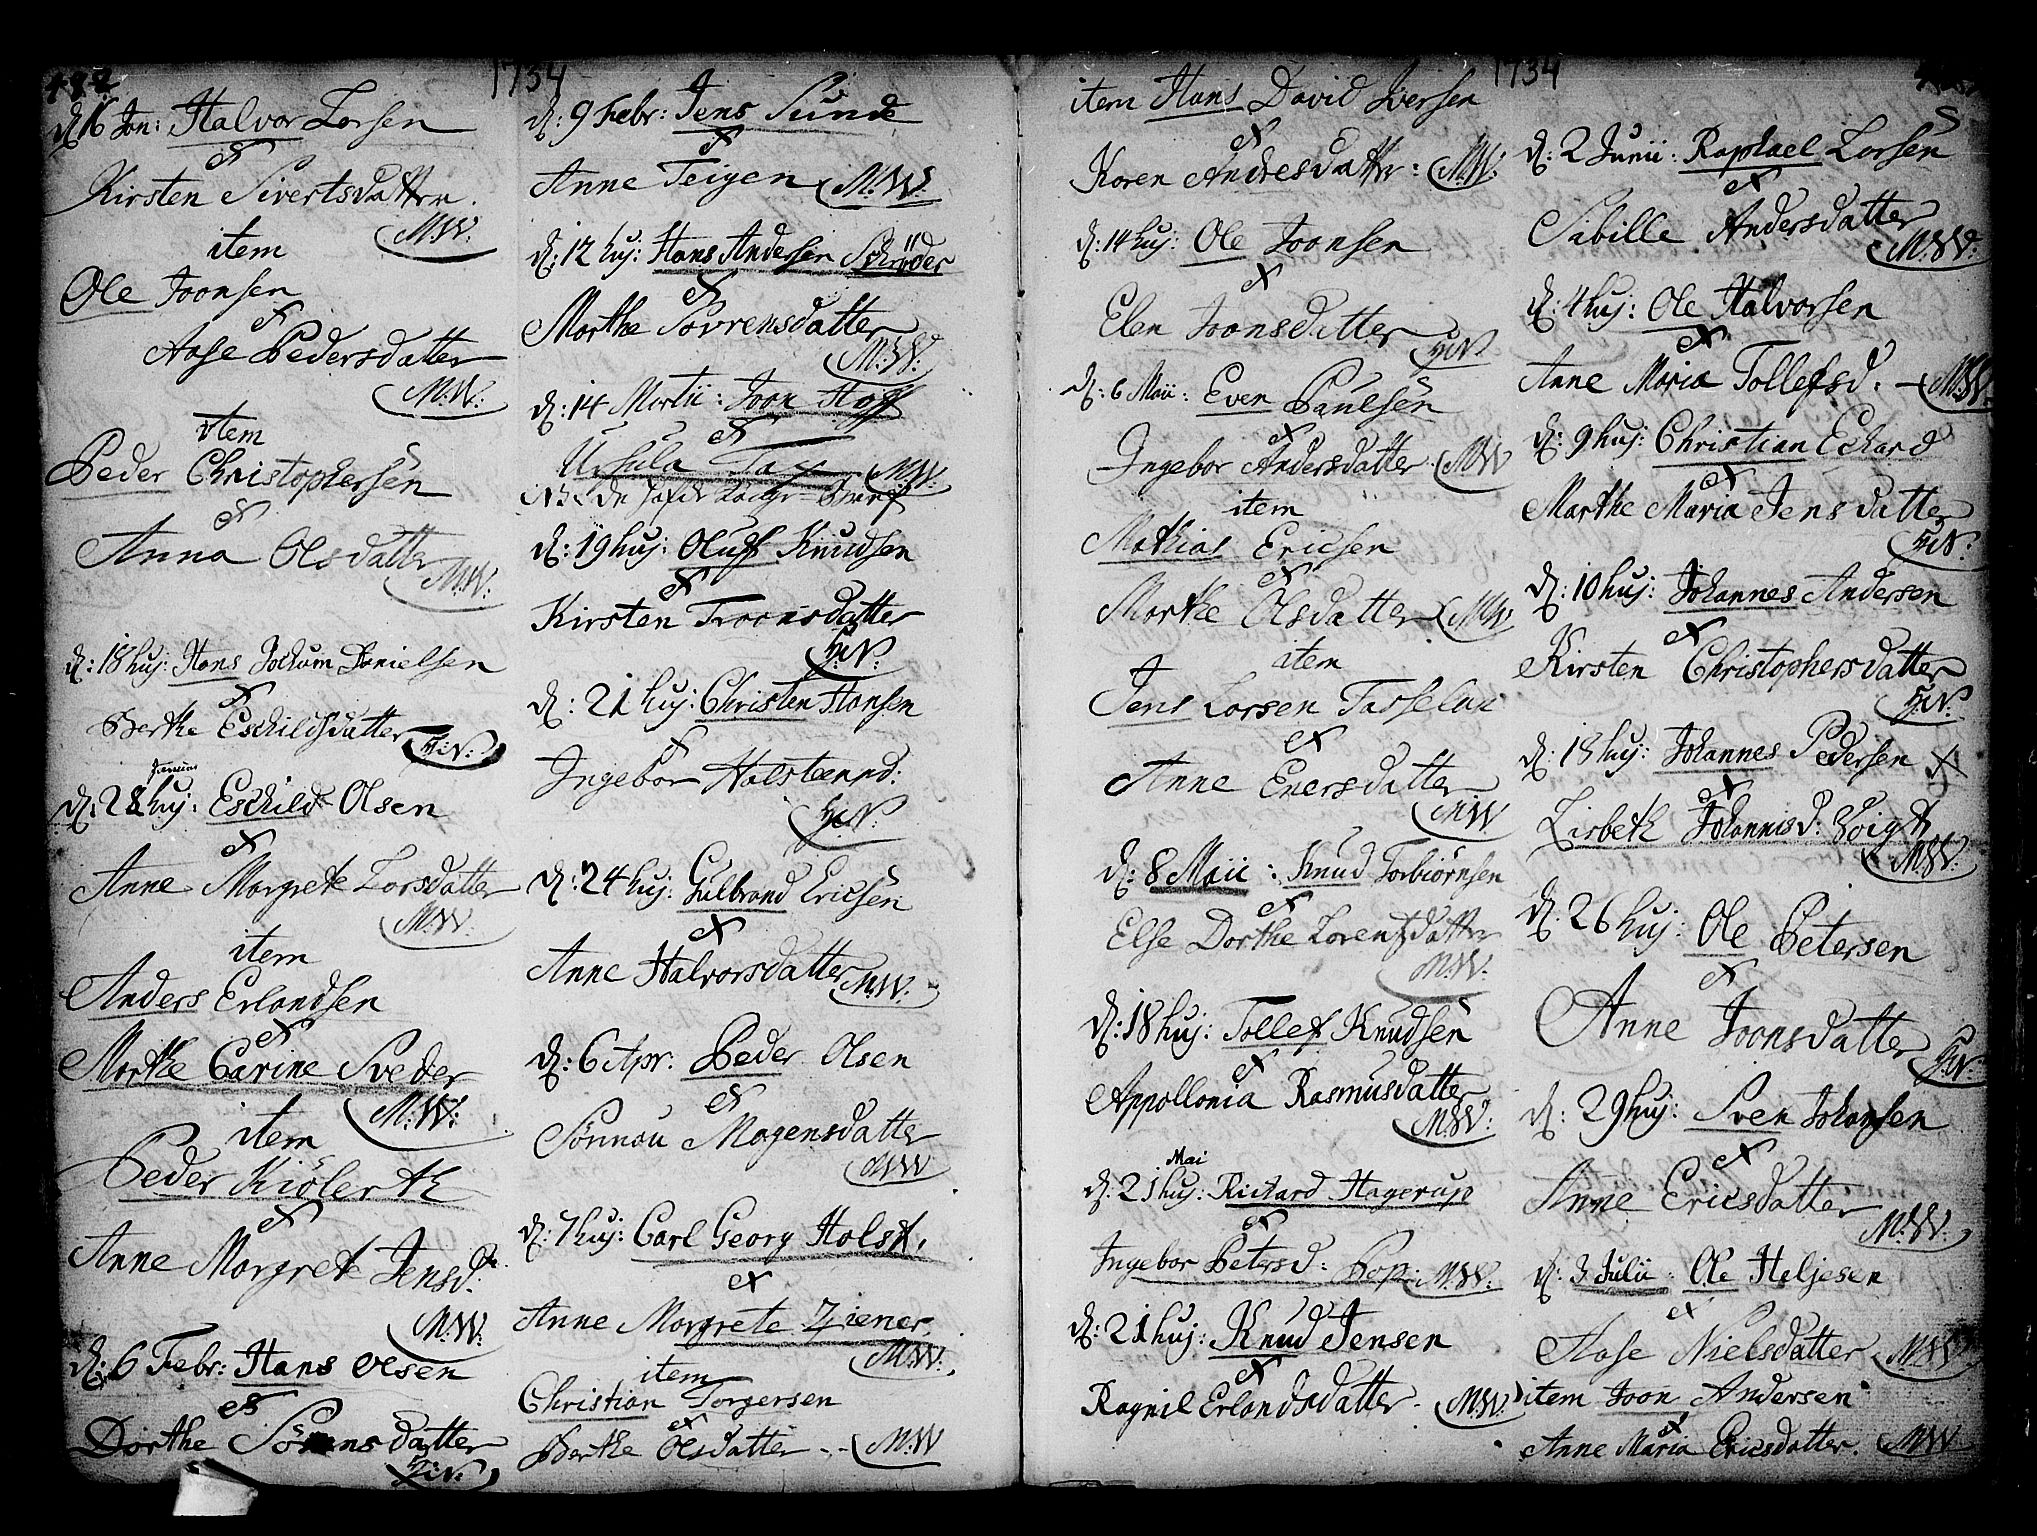 1734
d: 16 Jan: Halvor Larsen
et
Kirsten Sivertsdatter.
M.W.
item
Ole Joonsen
et
Aase Pedersdatter
M.W.
item
Peder Christophersen
et
Anna Olsdatter
M.W.
d: 18 huj: Hans Jochum Danielsen
et
Berthe Eschildsdatter
H:N:
d: 28 huj: Eschild Olsen
et
Anne Margrete Larsdatter
M.W.
item
Anders Erlandsen
et
Marthe Carine Sveder
M:W:
item
Peder Kiölerth
et
Anne Margrete Jensd:
M.W:
d: 6 Febr: Hans Olsen
et
Dorthe Sörensdatter
H:N.
d: 9 Febr: Jens Sund
et
Anne Teigen M:W.
d: 12 huj: Hans Andersen Schröder
et
Marthe Sovrensdatter
M:W:
d: 14 Martii: Joon Hoff
et
Ursula Tax M.W.
d: 19 huj: Oluff Knudsen
et
Kirsten Troonsdatter
H:N:
d: 21 huj: Christen Hansen
et
Ingebor Halsteensd:
H:N:
d: 24 huj: Gulbrand Ericsen
et
Anne Halvorsdatter M:W:
d: 6 Apr: Peder Olsen
et
Sönnou Mogensdatter
M:W
d: 7 huj: Carl Georg Holst,
et
Anne Margrete Ziener,
M:W:
item
Christian Torgersen
et
Berthe Olsdatter - - M:W
1734
item Hans David Iversen
et
Karen Andresdatter: M:W:
d: 14 huj: Ole Joonsen
et
Elen Joonsdatter
H:N
d: 6 Maii: Even Paulsen
et
Ingebor Andersdatter M:W
item
Mathias Ericsen
et
Marthe Olsdatter M:W
item
Jens Larsen
et
Anne Enersdatter
M:W
d: 8 Maii: Knud Torbiörnsen
et
Else Dorthe Lorentzdatter
M:W.
d: 18 huj: Tollef Knudsen
et
Appollonia Rasmusdatter
M:W:
Mai
d: 21 huj: Richard Hagerup
et
Ingebor Petersd: Pop: M:W:
d: 21 huj: Knud Jensen
et
Ragnil Erlandsdatter. M:W.
d: 2 Junii: Raphael Larsen
et
Sibille Andersdatter
M:W:
d: 4 huj: Ole Halvorsen
et
Anne Maria Tollefsd. - M:W.
d: 9 huj: Christian Echard
et
Marthe Maria Jensdatter
H:N:
d: 10 huj: Johannes Andersen
et
Kirsten Christophersdatter
H:N:
d: 18 huj: Johannes Pedersen
et
Lisbeth Johannisd: Voigt
M:W:
d: 26 huj: Ole Petersen
et
Anne Joonsdatter
H:N:
d: 29 huj: Sven Johansen
et
Anne Ericsdatter
M:W:
d: 3 Julii: Ole Heljesen
et
Aase Nielsdatter M:W
item Joon Andersen
et
Anne Maria Ericsdatter. M:W